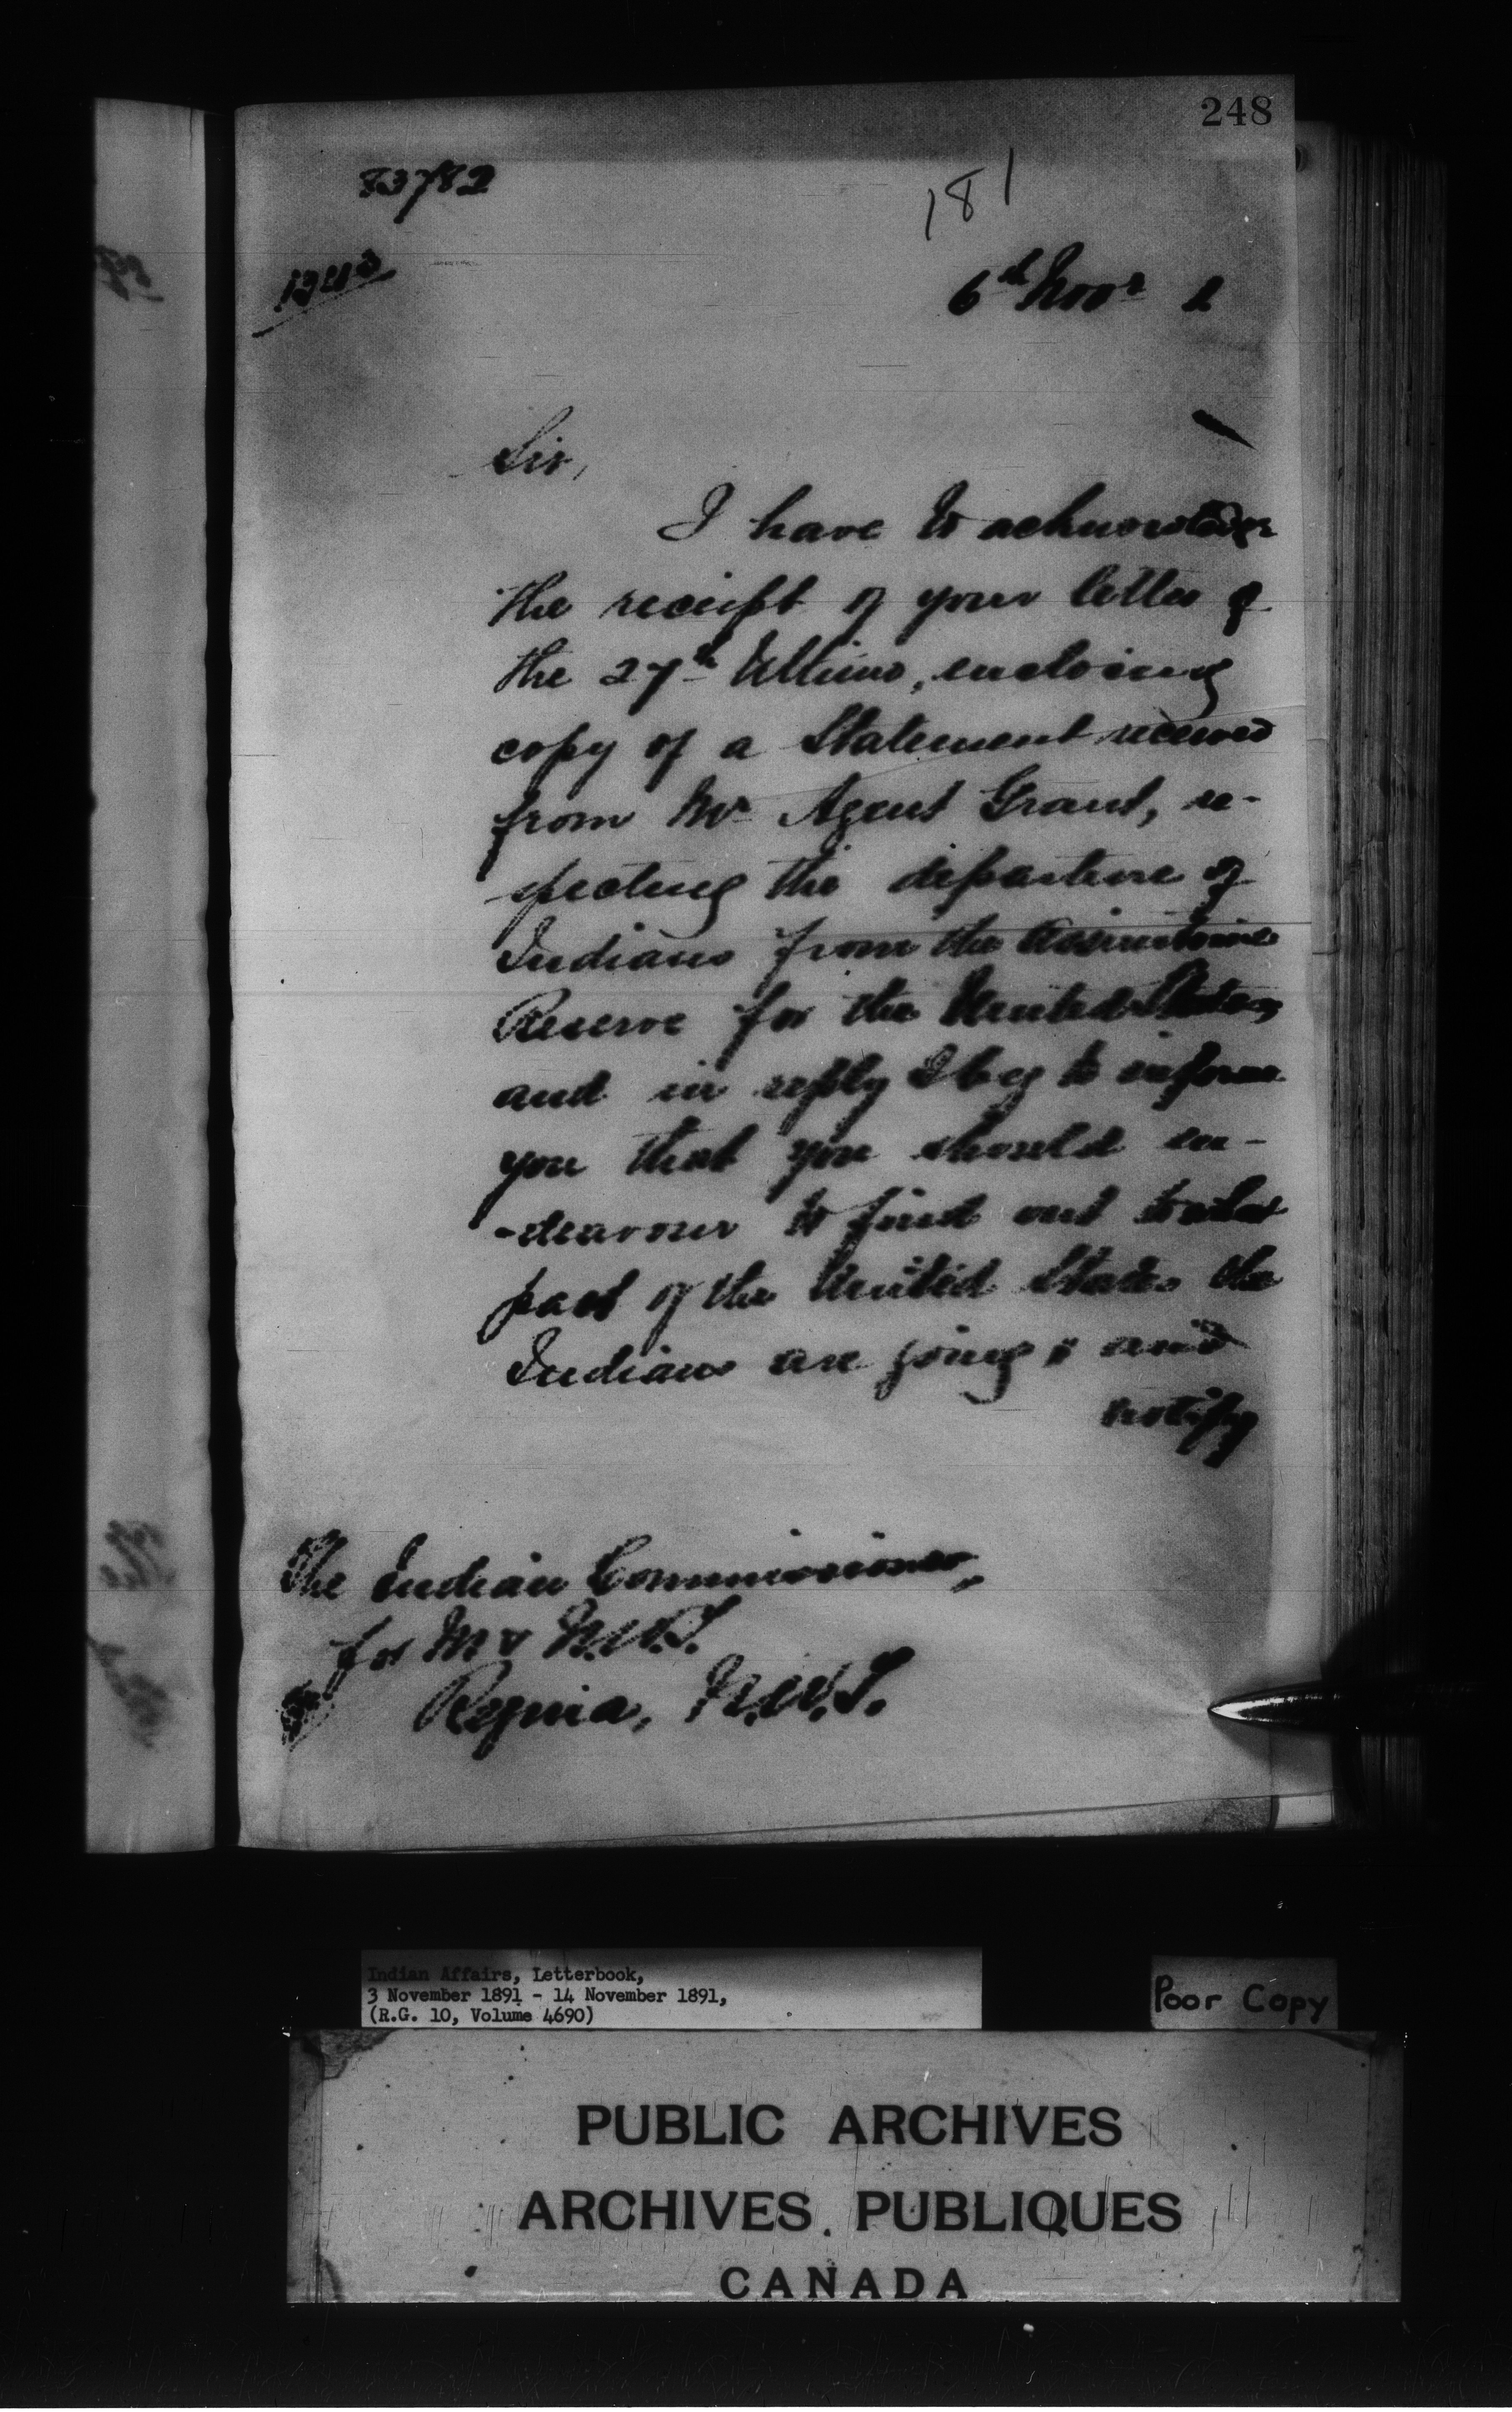 248
83782
181
6th Novr 1
Sir,
I have to acknowledge
the receipt of your letter of
the 27th Ultimo, enclosing
copy of a Statement received
from Mr Agent Grant, re-
specting the departure of
Indians from the Assiniboine
Reserve for the United States,
and in reply I beg to inform
you that you should en-
-deavour to find out to what
part of the United States the
Indians are going; and
notify
The Indian Commissioner,
for M & N.W.T.
Regina, N.W.T.
Indian Affairs, Letterbook,
3 November 1891 - 14 November 1891,
(R.G. 10, Volume 4690)
Poor Copy
PUBLIC ARCHIVES
ARCHIVES PUBLIQUES
CANADA